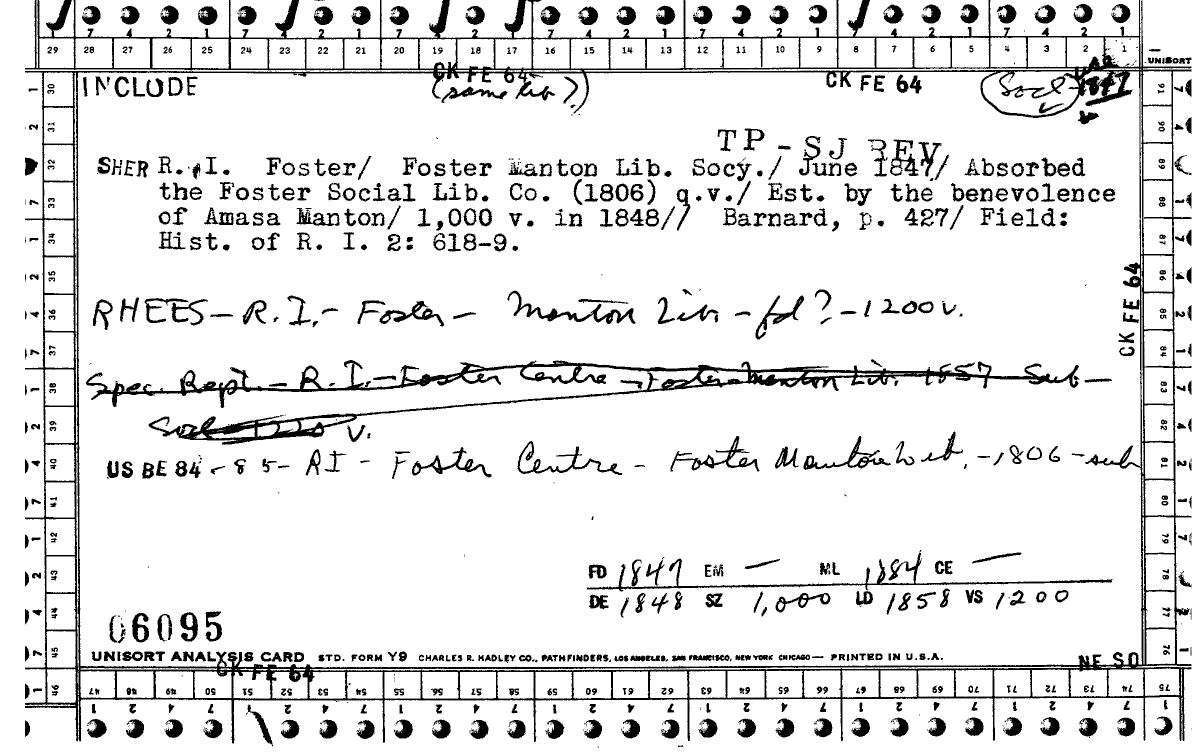 7 4 2 1 7 4 2 1 7 4 2 1 7 4 2 1 7 4 2 1 7 4 2 1 7 4 2 1
29 28 27 26 25 24 23 22 21 20 19 18 17 16 15 14 13 12 11 10 9 8 7 6 5 4 3 2 1
UNISORT
INCLUDE CK FE 64 CK FE 64 Socl 1847
(same lib?)
TP-SJ REV
SHER R. I. Foster/ Foster Manton Lib. Socy./ June 1847/ Absorbed
the Foster Social Lib. Co. (1806) q.v./ Est. by the benevolence
of Amasa Manton/ 1,000 v. in 1848// Barnard, p. 427/ Field:
Hist. of R. I. 2: 618-9.
CK FE 64
RHEES - R.I. - Foster - Manton Lib - fd? - 1200 v.
Spec. Rept. - R.I. - Foster Centre - Foster Manton Lib. 1857 Sub -
Socl 1220 v.
US BE 84 - 85 - RI - Foster Centre - Foster Manton Lib. - 1806 - sub
FD 1847 EM — ML 1884 CE —
DE 1848 SZ 1,000 LD 1858 VS 1200
06095
UNISORT ANALYSIS CARD STD. FORM Y9 CHARLES R. HADLEY CO., PATHFINDERS, LOS ANGELES, SAN FRANCISCO, NEW YORK CHICAGO — PRINTED IN U.S.A.
CK FE 64 NE SO
46 47 48 49 50 51 52 53 54 55 56 57 58 59 60 61 62 63 64 65 66 67 68 69 70 71 72 73 74 75